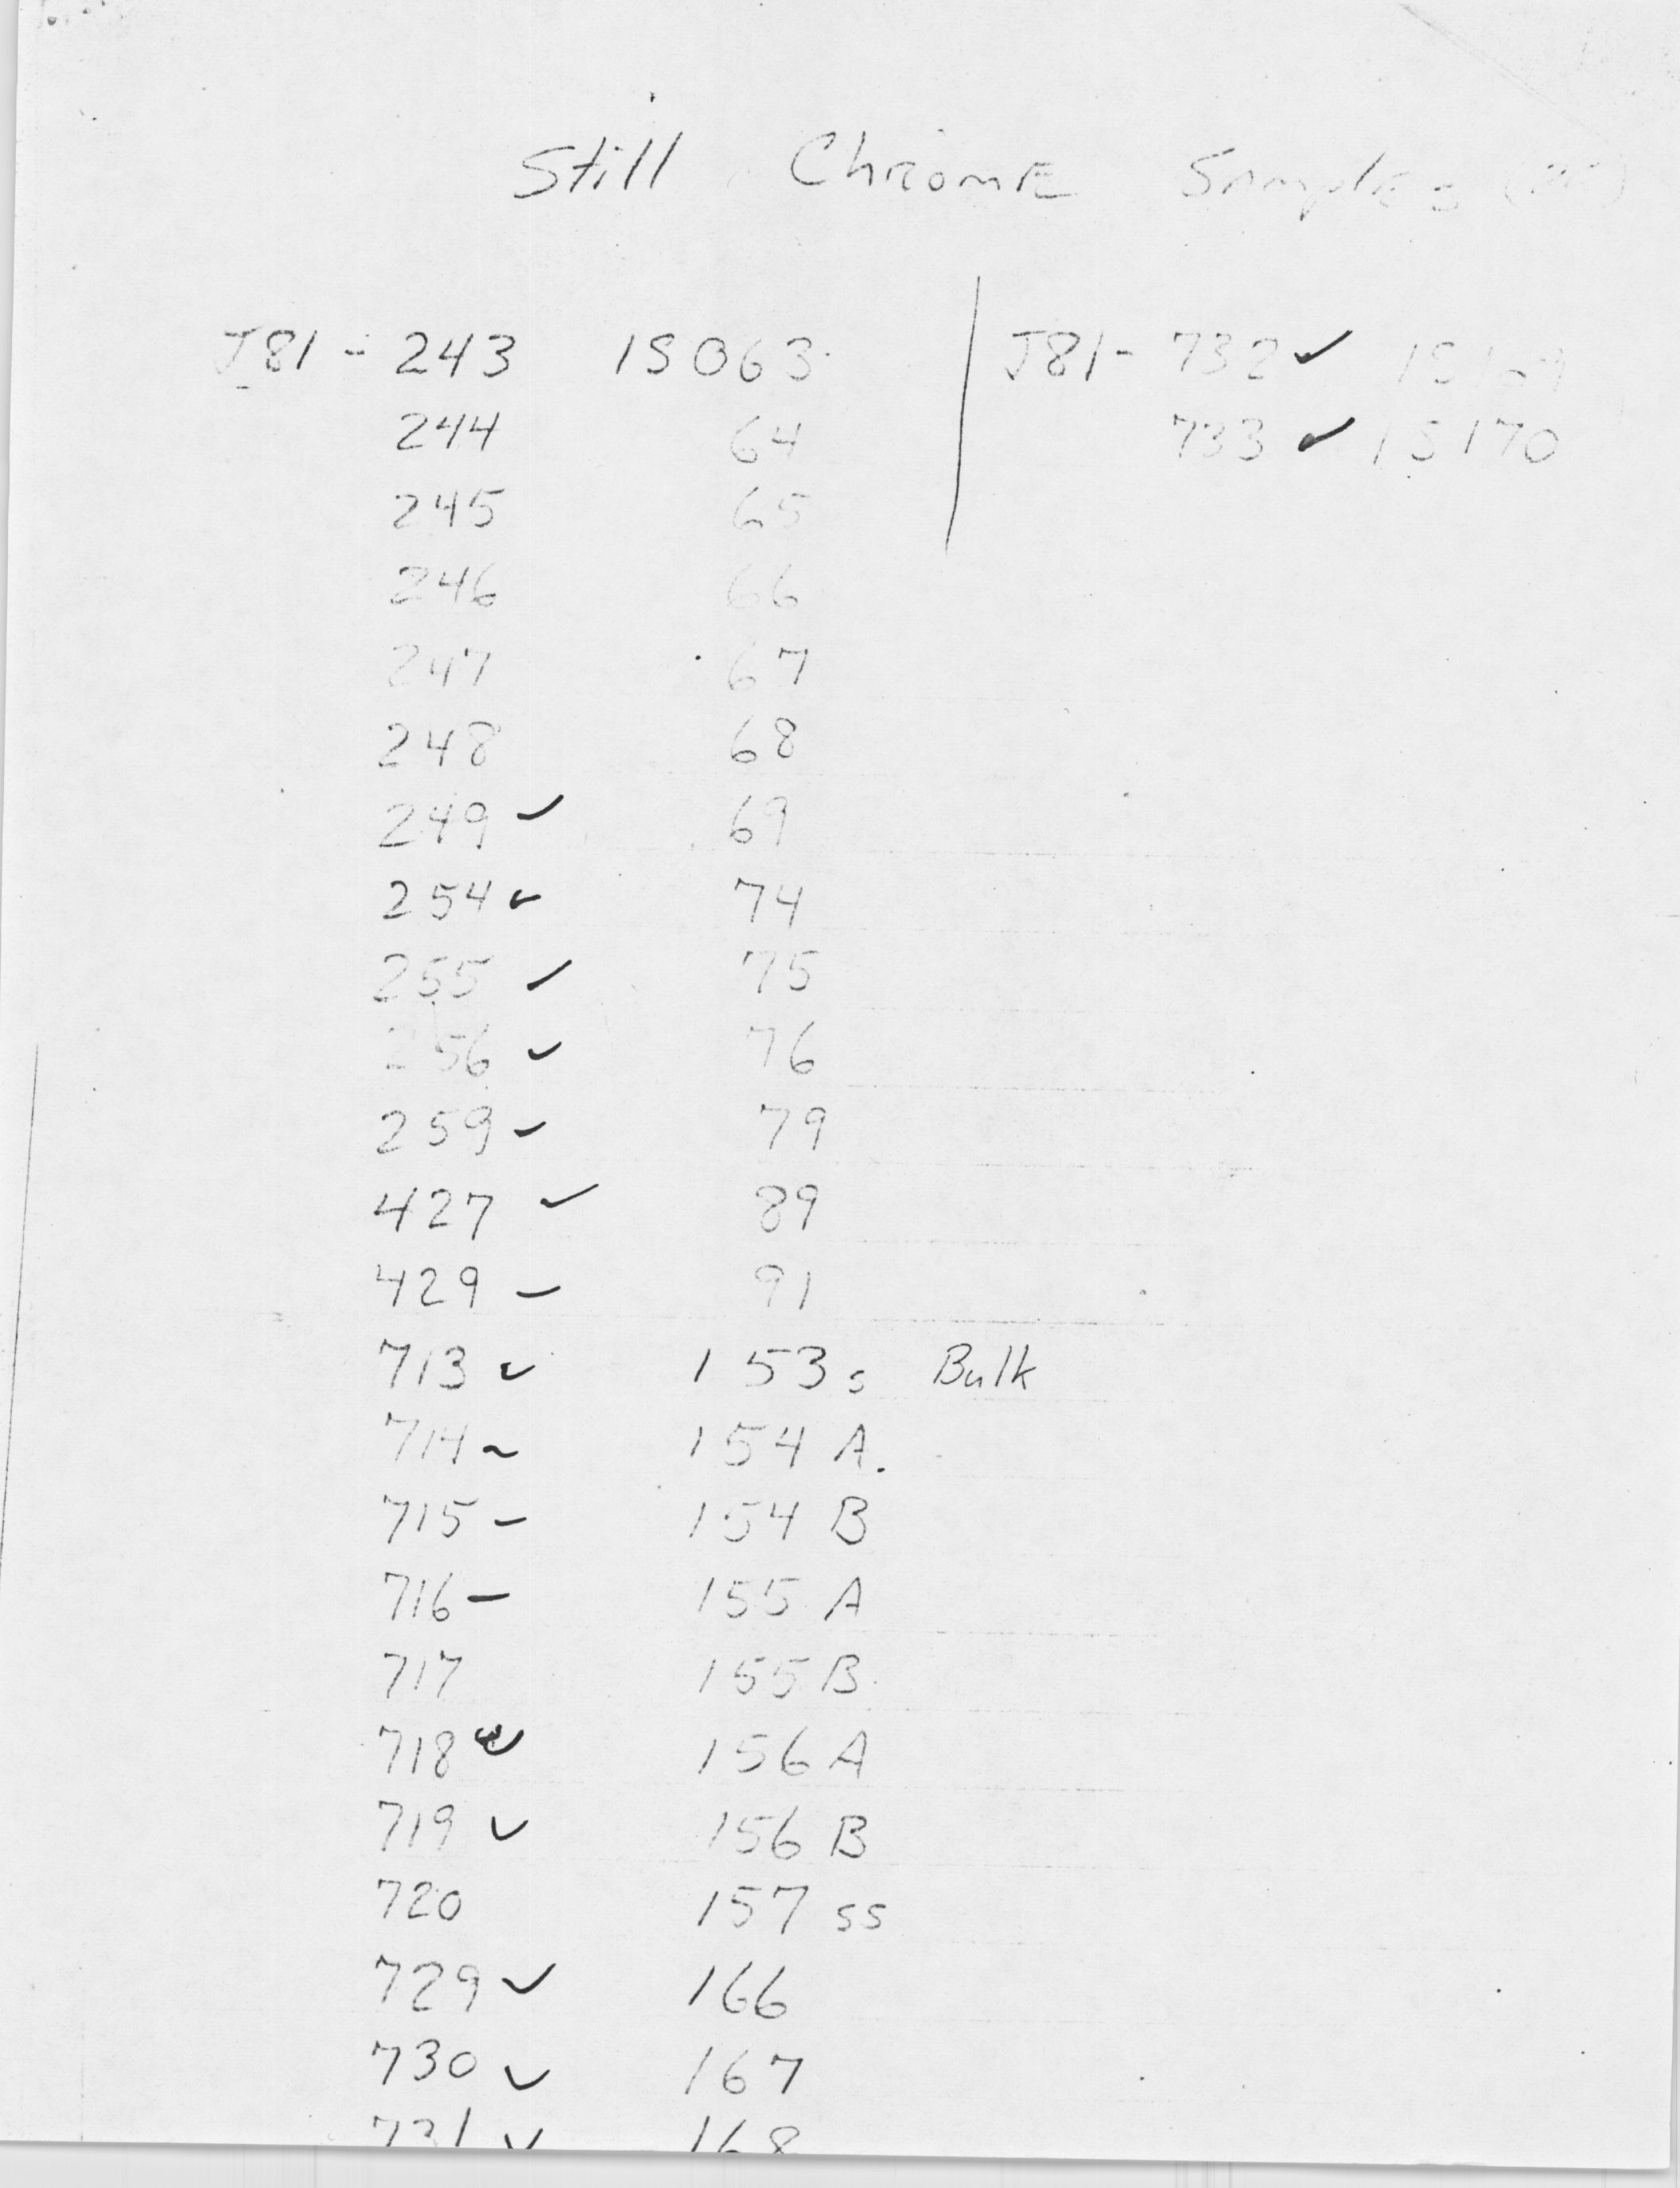 Still Chrome Samples
J81 - 243 15063
244 64
245 65
246 66
247 67
248 68
249 ✓ 69
254 ✓ 74
255 ✓ 75
256 ✓ 76
259 ✓ 79
427 ✓ 89
429 ✓ 91
713 ✓ 153s Bulk
714 ✓ 154 A.
715 ✓ 154 B
716 ✓ 155 A
717 155 B
718 ✓ 156 A
719 ✓ 156 B
720 157 ss
729 ✓ 166
730 ✓ 167
731 ✓ 168
J81 - 732 ✓ 15169
733 ✓ 15170